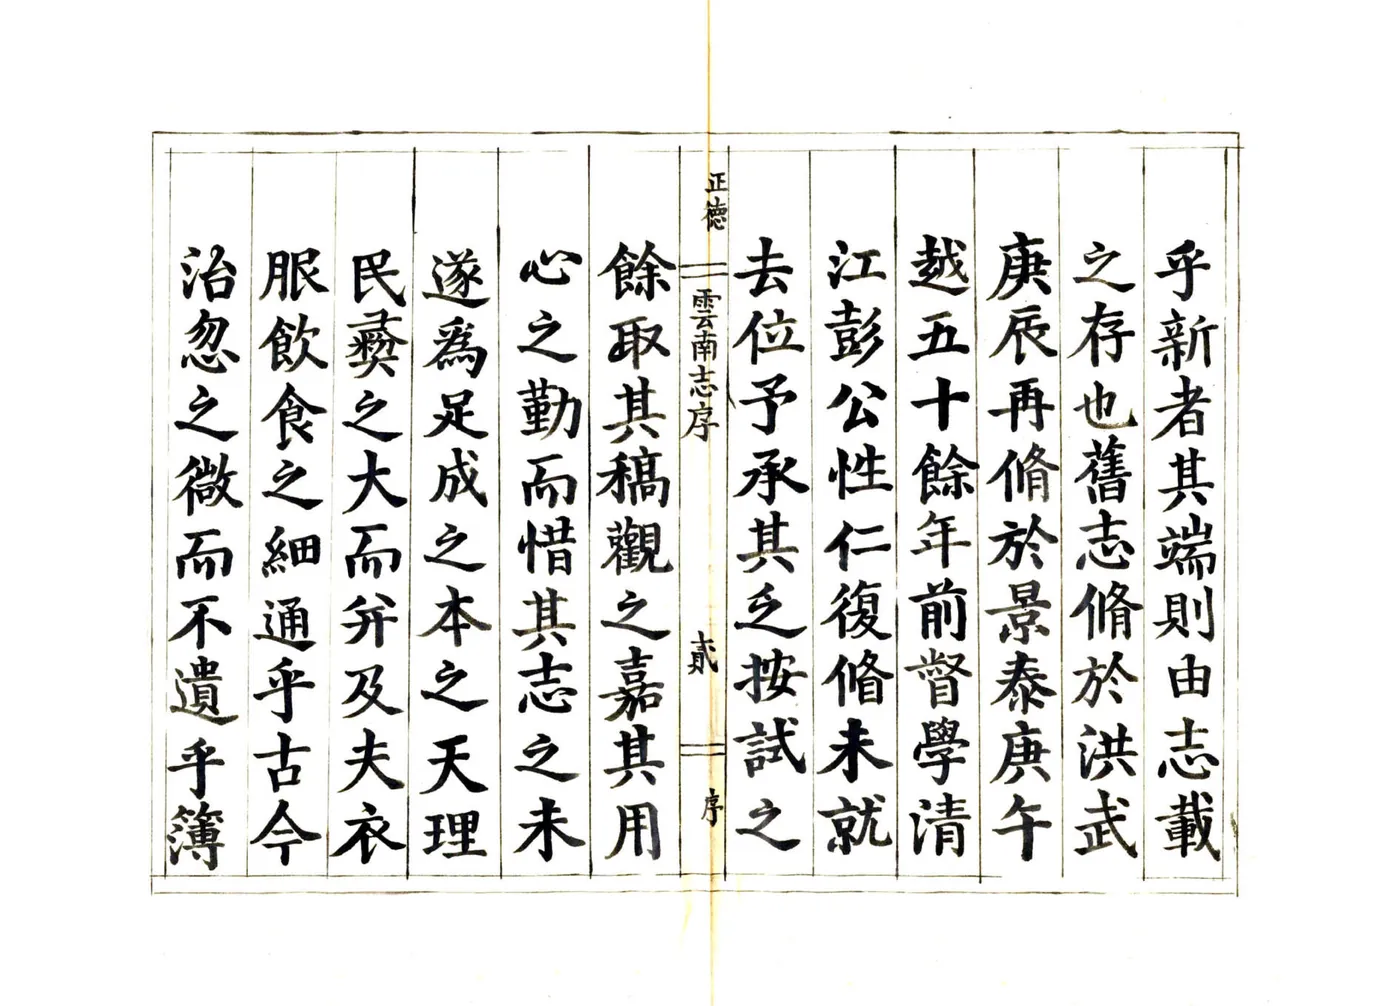 乎新者其端則由志載
之存也舊志脩於洪武
庚辰再脩於景泰庚午
越五十餘年前督學清
江彭公性仁復脩未就
去位予承其乏按試之
正德
雲南志序
貳
序
餘取其稿觀之嘉其用
心之勤而惜其志之未
遂爲足成之本之天理
民彝之大而幷及夫衣
服飲食之細通乎古今
治忽之微而不遺乎簿